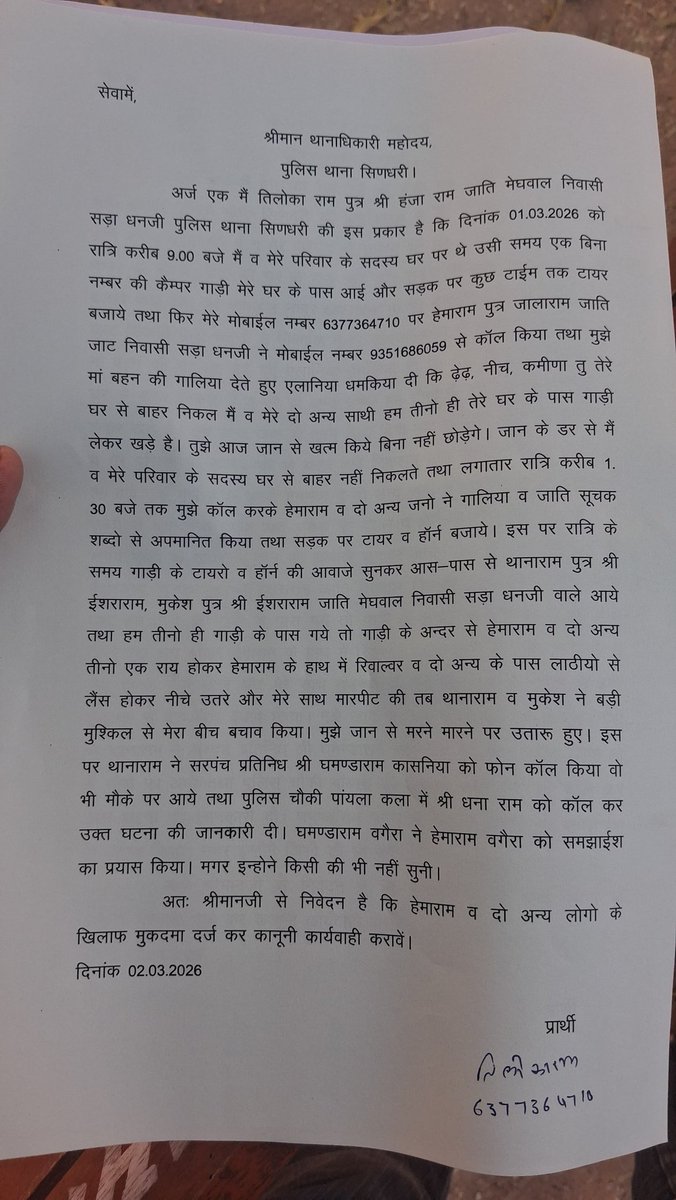 सेवामें,
श्रीमान थानाधिकारी महोदय,
पुलिस थाना सिणधरी।
अर्ज एक मैं तिलोका राम पुत्र श्री हंजा राम जाति मेघवाल निवासी
सड़ा धनजी पुलिस थाना सिणधरी की इस प्रकार है कि दिनांक 01.03.2026 को
रात्रि करीब 9.00 बजे मैं व मेरे परिवार के सदस्य घर पर थे उसी समय एक बिना
नम्बर की कैम्पर गाड़ी मेरे घर के पास आई और सड़क पर कुछ टाईम तक टायर
बजाये तथा फिर मेरे मोबाईल नम्बर 6377364710 पर हेमाराम पुत्र जालाराम जाति
जाट निवासी सड़ा धनजी ने मोबाईल नम्बर 9351686059 से कॉल किया तथा मुझे
मां बहन की गालिया देते हुए एलानिया धमकिया दी कि ढ़ेढ़, नीच, कमीणा तु तेरे
घर से बाहर निकल मैं व मेरे दो अन्य साथी हम तीनो ही तेरे घर के पास गाड़ी
लेकर खड़े है। तुझे आज जान से खत्म किये बिना नहीं छोड़ेगे। जान के डर से मैं
व मेरे परिवार के सदस्य घर से बाहर नहीं निकलते तथा लगातार रात्रि करीब 1.
30 बजे तक मुझे कॉल करके हेमाराम व दो अन्य जनो ने गालिया व जाति सूचक
शब्दो से अपमानित किया तथा सड़क पर टायर व हॉर्न बजाये। इस पर रात्रि के
समय गाड़ी के टायरो व हॉर्न की आवाजे सुनकर आस–पास से थानाराम पुत्र श्री
ईशराराम, मुकेश पुत्र श्री ईशराराम जाति मेघवाल निवासी सड़ा धनजी वाले आये
तथा हम तीनो ही गाड़ी के पास गये तो गाड़ी के अन्दर से हेमाराम व दो अन्य
तीनो एक राय होकर हेमाराम के हाथ में रिवाल्वर व दो अन्य के पास लाठीयो से
लैंस होकर नीचे उतरे और मेरे साथ मारपीट की तब थानाराम व मुकेश ने बड़ी
मुश्किल से मेरा बीच बचाव किया। मुझे जान से मरने मारने पर उतारू हुए। इस
पर थानाराम ने सरपंच प्रतिनिध श्री घमण्डाराम कासनिया को फोन कॉल किया वो
भी मौके पर आये तथा पुलिस चौकी पांयला कला में श्री धना राम को कॉल कर
उक्त घटना की जानकारी दी। घमण्डाराम वगैरा ने हेमाराम वगैरा को समझाईश
का प्रयास किया। मगर इन्होने किसी की भी नहीं सुनी।
अतः श्रीमानजी से निवेदन है कि हेमाराम व दो अन्य लोगो के
खिलाफ मुकदमा दर्ज कर कानूनी कार्यवाही करावें।
दिनांक 02.03.2026
प्रार्थी
तिलोकाराम
6377364710